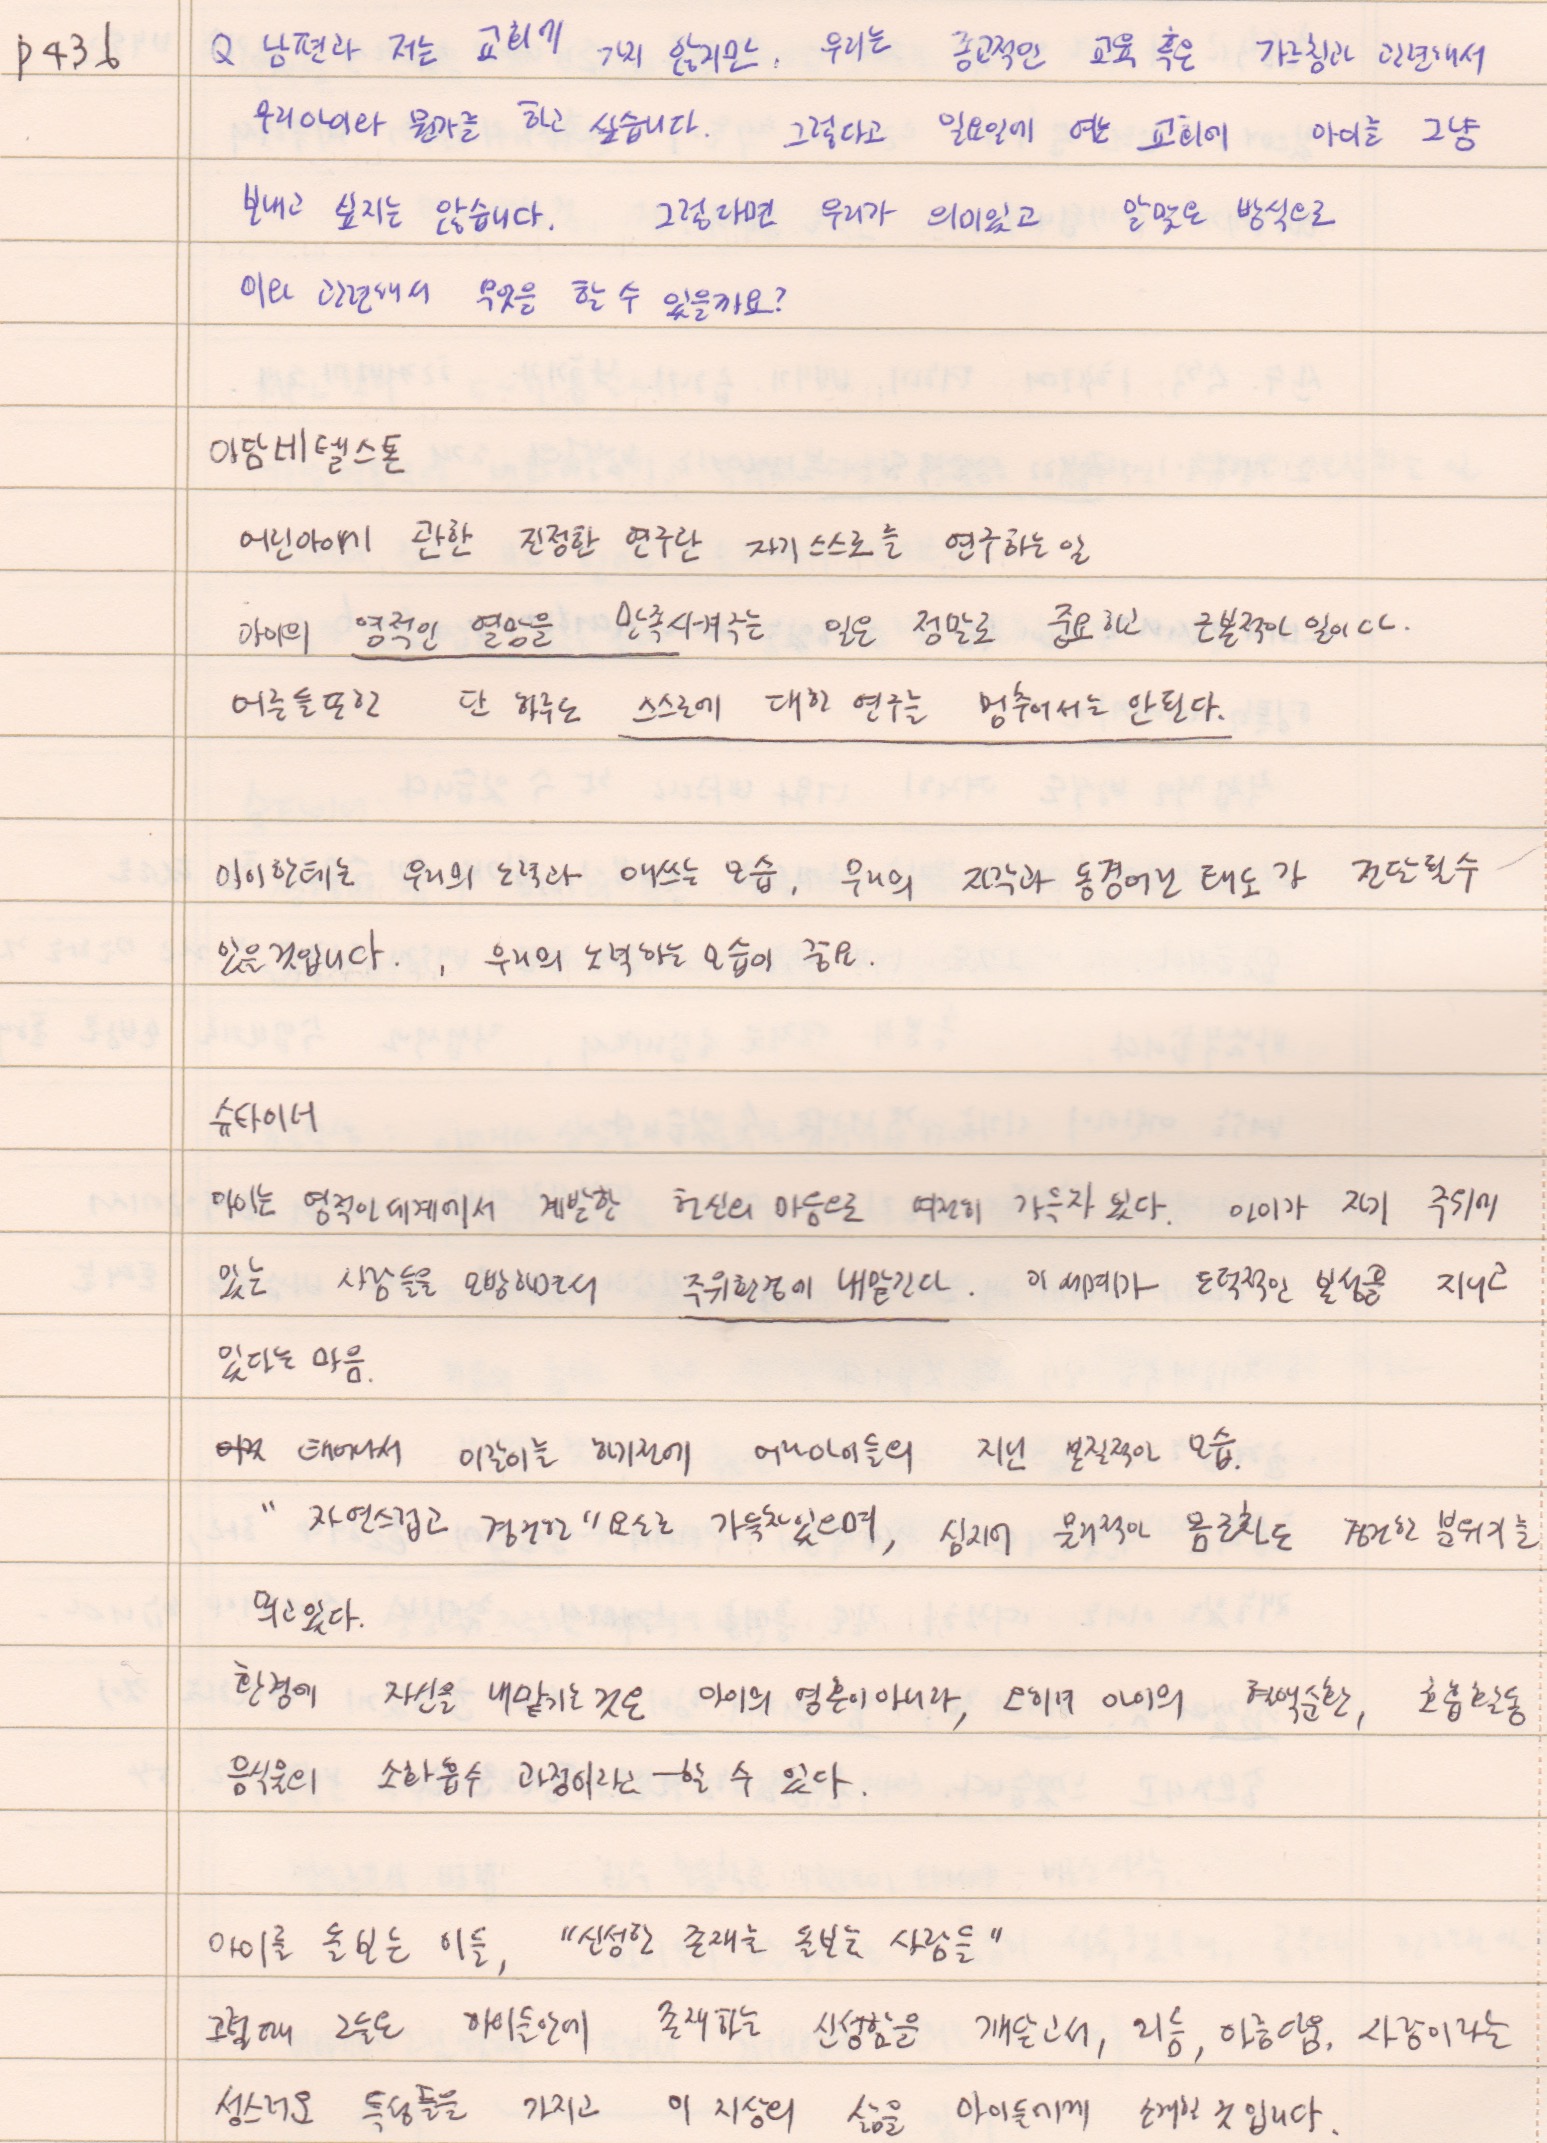 p436
Q 남편과 저는 교회에 가지 않지만, 우리는 종교적인 교육 혹은 가르침과 관련해서
우리아이와 뭔가를 하고 싶습니다. 그렇다고 일요일에 여는 교회에 아이를 그냥
보내고 싶지는 않습니다. 그렇다면 우리가 의미있고 알맞은 방식으로
이와 관련해서 무엇을 할 수 있을까요?
아담비텔스톤
어린아이에 관한 진정한 연구란 자기스스로를 연구하는일
아이의 영적인 열망을 만족시켜주는 일은 정말로 중요하고 근본적인 일이다.
어른들또한 단 하루도 스스로에 대한 연구를 멈추어서는 안된다.
아이한테는 우리의 노력과 애쓰는 모습, 우리의 지각과 동경어린 태도가 전달될수
있을것입니다. , 우리의 노력하는 모습이 중요.
슈타이너
아이는 영적인세계에서 계발한 헌신의 마음으로 여전히 가득차 있다. 아이가 자기 주위에
있는 사람들을 모방하면서 주위환경에 내맡긴다. 이 세계가 도덕적인 본성을 지니고
있다는 마음.
태어나서 이갈이를 하기전에 어린아이들의 지닌 본질적인 모습.
" 자연스럽고 경건한 " 요소로 가득차있으며, 심지어 물리적인 몸조차도 경건한 분위기를
띄고있다.
환경에 자신을 내맡기는것은 아이의 영혼이아니라, 오히려 아이의 혈액순환, 호흡활동
음식물의 소화흡수 과정이라고 할 수 있다.
아이를 돌보는 이들, "신성한 존재를 돌보는 사람들"
그럴때 그들은 아이들안에 존재하는 신성함을 깨닫고서, 리듬, 아름다움, 사랑이라는
성스러운 특성들을 가지고 이 지상의 삶을 아이들에게 소개할 것입니다.